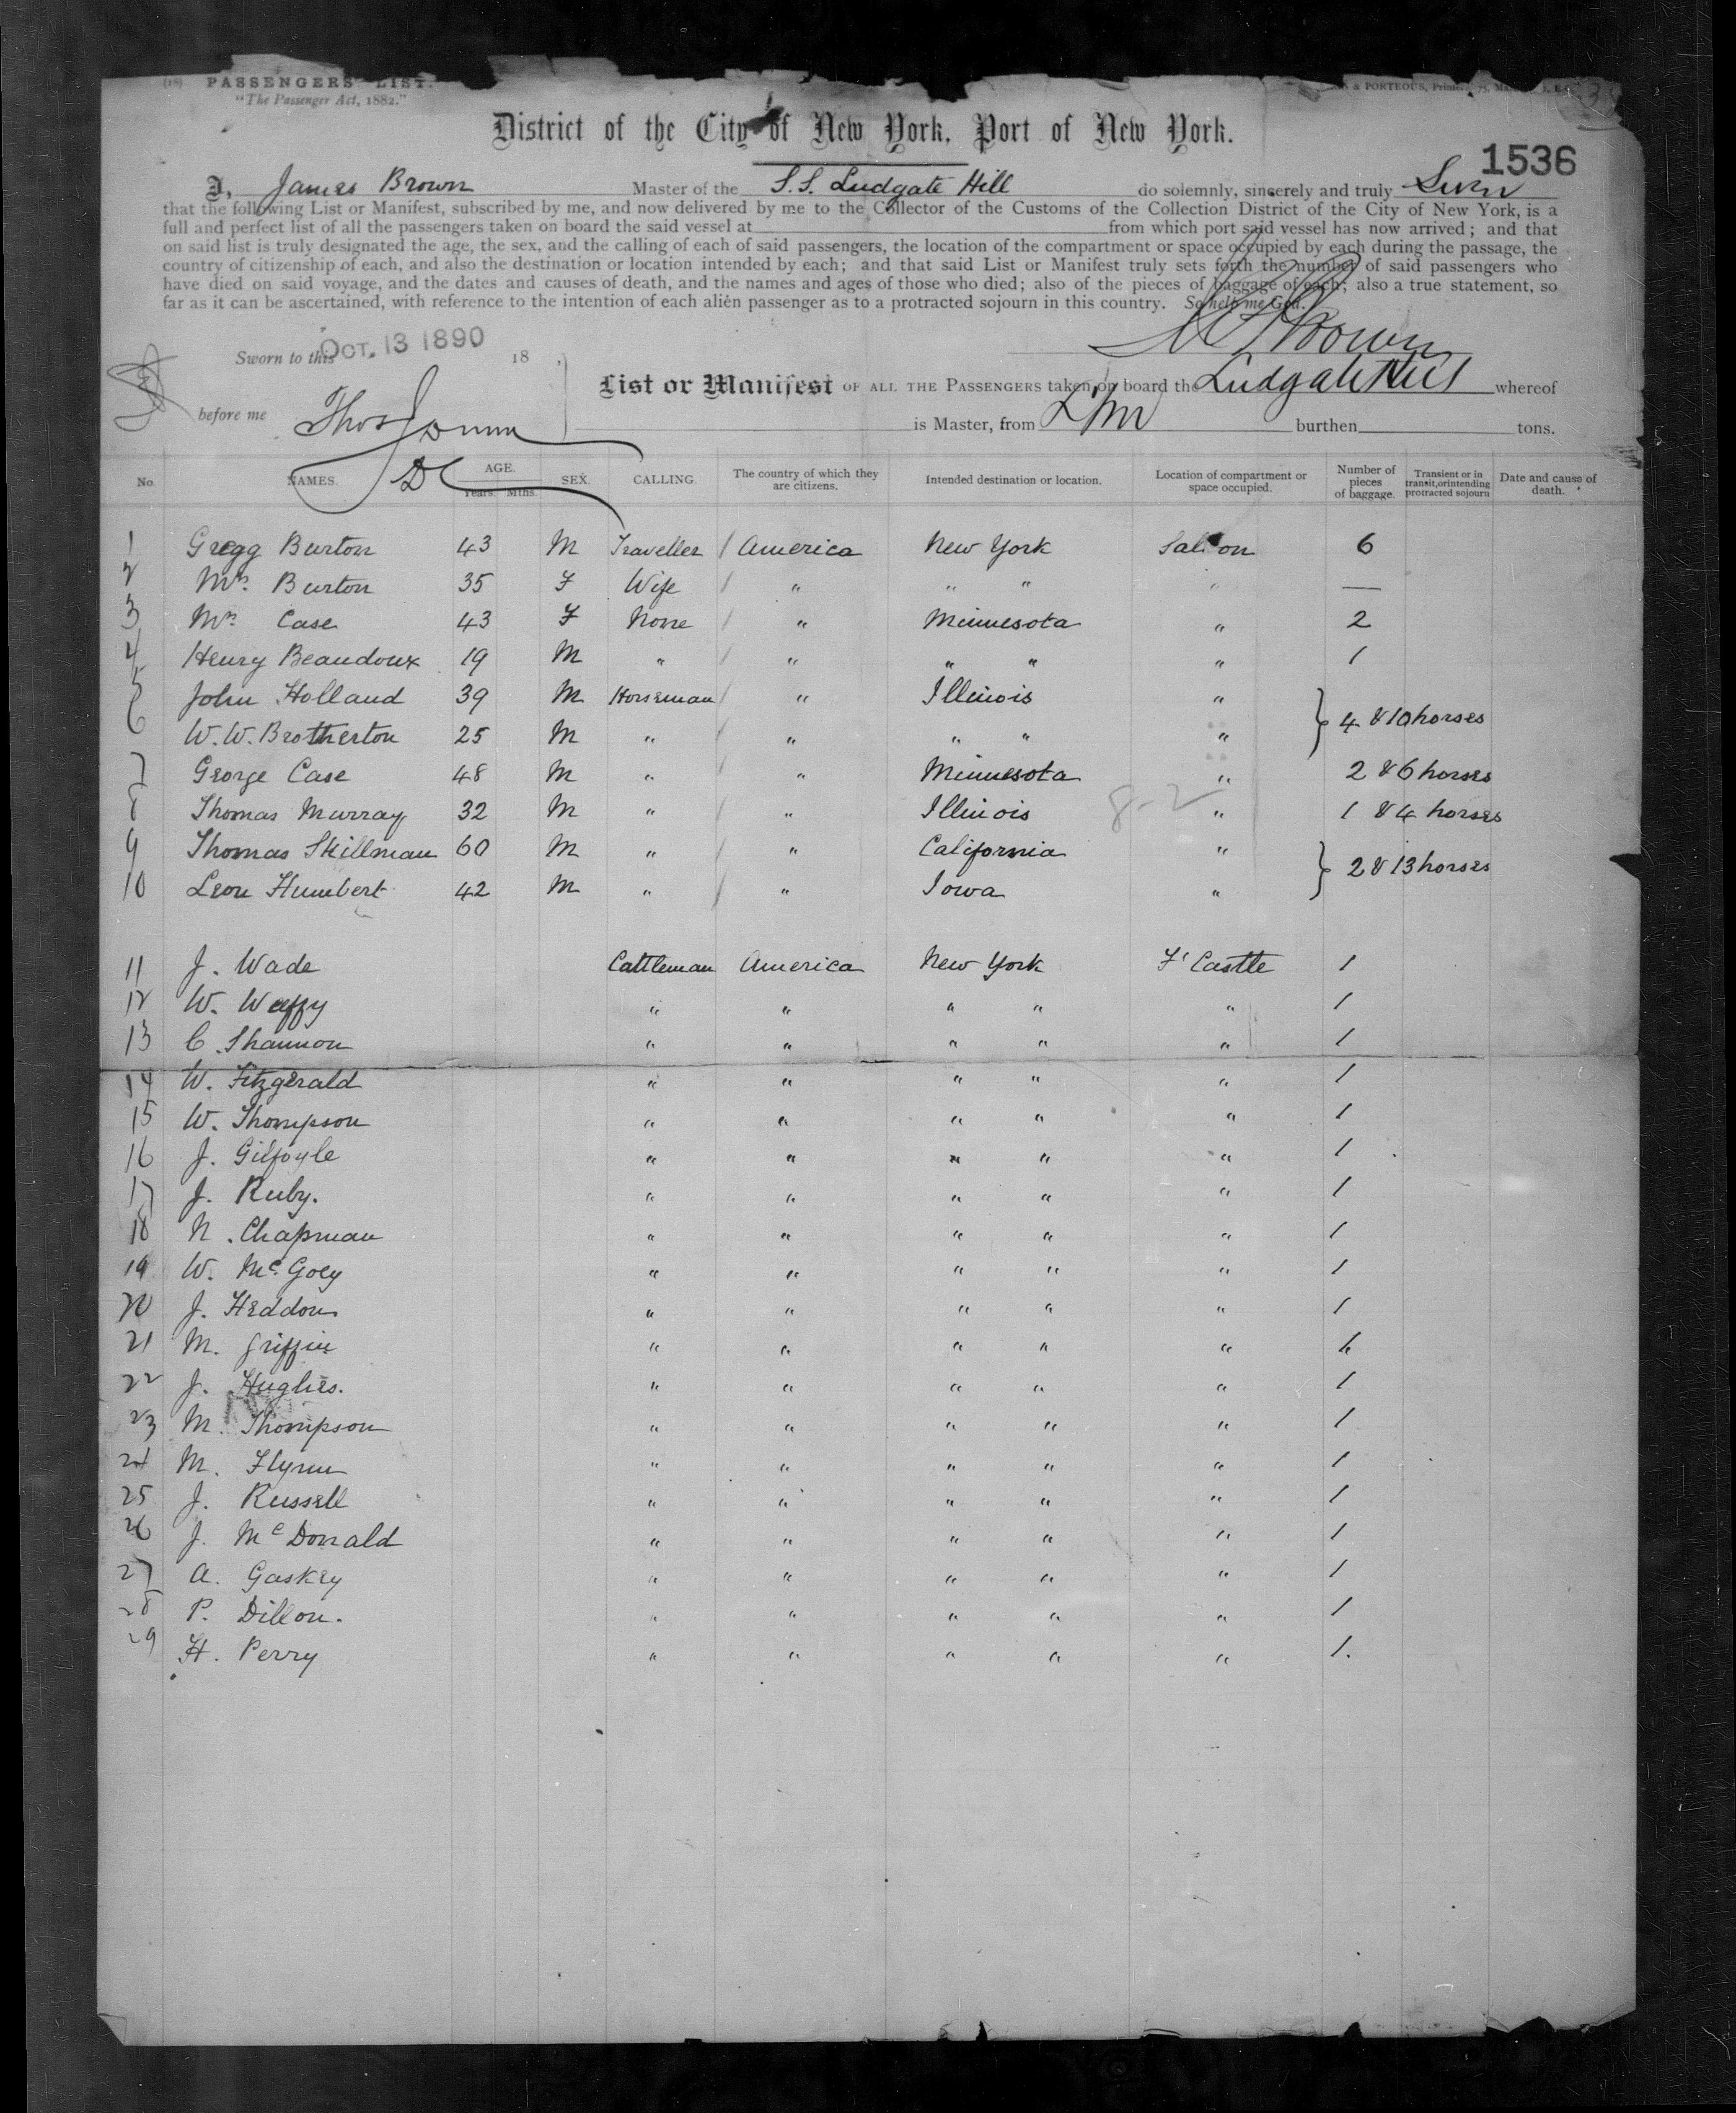 (18) PASSENGERS' LIST.
"The Passenger Act, 1882."
& PORTEOUS, Printers
District of the City of New York, Port of New York.
1536
I, James Brown Master of the S.S. Ludgate Hill do solemnly, sincerely and truly Swear
that the following List or Manifest, subscribed by me, and now delivered by me to the Collector of the Customs of the Collection District of the City of New York, is a
full and perfect list of all the passengers taken on board the said vessel at from which port said vessel has now arrived; and that
on said list is truly designated the age, the sex, and the calling of each of said passengers, the location of the compartment or space occupied by each during the passage, the
country of citizenship of each, and also the destination or location intended by each; and that said List or Manifest truly sets forth the number of said passengers who
have died on said voyage, and the dates and causes of death, and the names and ages of those who died; also of the pieces of baggage of each; also a true statement, so
far as it can be ascertained, with reference to the intention of each alien passenger as to a protracted sojourn in this country. So help me God.
Brown
Sworn to this OCT. 13 1890 18
List or Manifest OF ALL THE PASSENGERS taken on board the Ludgate Hill whereof
before me Thos
is Master, from burthen tons.
DC
No. NAMES. AGE. Years. Mths. SEX. CALLING. The country of which they are citizens. Intended destination or location. Location of compartment or space occupied. Number of pieces of baggage. Transient or in transit, or intending protracted sojourn Date and cause of death.
1 Gregg Burton 43 M Traveller / America New York Saloon 6
2 Mrs. Burton 35 F Wife / " " " " —
3 Mrs. Case 43 F None / " Minnesota " 2
4 Henry Beaudoux 19 M " / " " " " 1
5 John Holland 39 M Horseman / " Illinois "
} 4 & 10 horses
6 W. W. Brotherton 25 M " / " " " "
7 George Case 48 M " / " Minnesota " 2 & 6 horses
8 Thomas Murray 32 M " / " Illinois 8-2 " 1 & 4 horses
9 Thomas Skillman 60 M " / " California "
} 2 & 13 horses
10 Leon Humbert 42 M " / " Iowa "
11 J. Wade Cattleman America New York F'Castle 1
12 W. Waffy " " " " " 1
13 C. Shannon " " " " " 1
14 W. Fitzgerald " " " " " 1
15 W. Thompson " " " " " 1
16 J. Gilfoyle " " " " " 1
17 J. Ruby. " " " " " 1
18 N. Chapman " " " " " 1
19 W. McGoey " " " " " 1
20 J. Heddon " " " " " 1
21 M. Griffin " " " " "
22 J. Hughes. " " " " " 1
23 M. Thompson " " " " " 1
24 M. Flynn " " " " " 1
25 J. Russell " " " " " 1
26 J. McDonald " " " " " 1
27 A. Gaskey " " " " " 1
28 P. Dillon. " " " " " 1
29 H. Perry " " " " " 1.